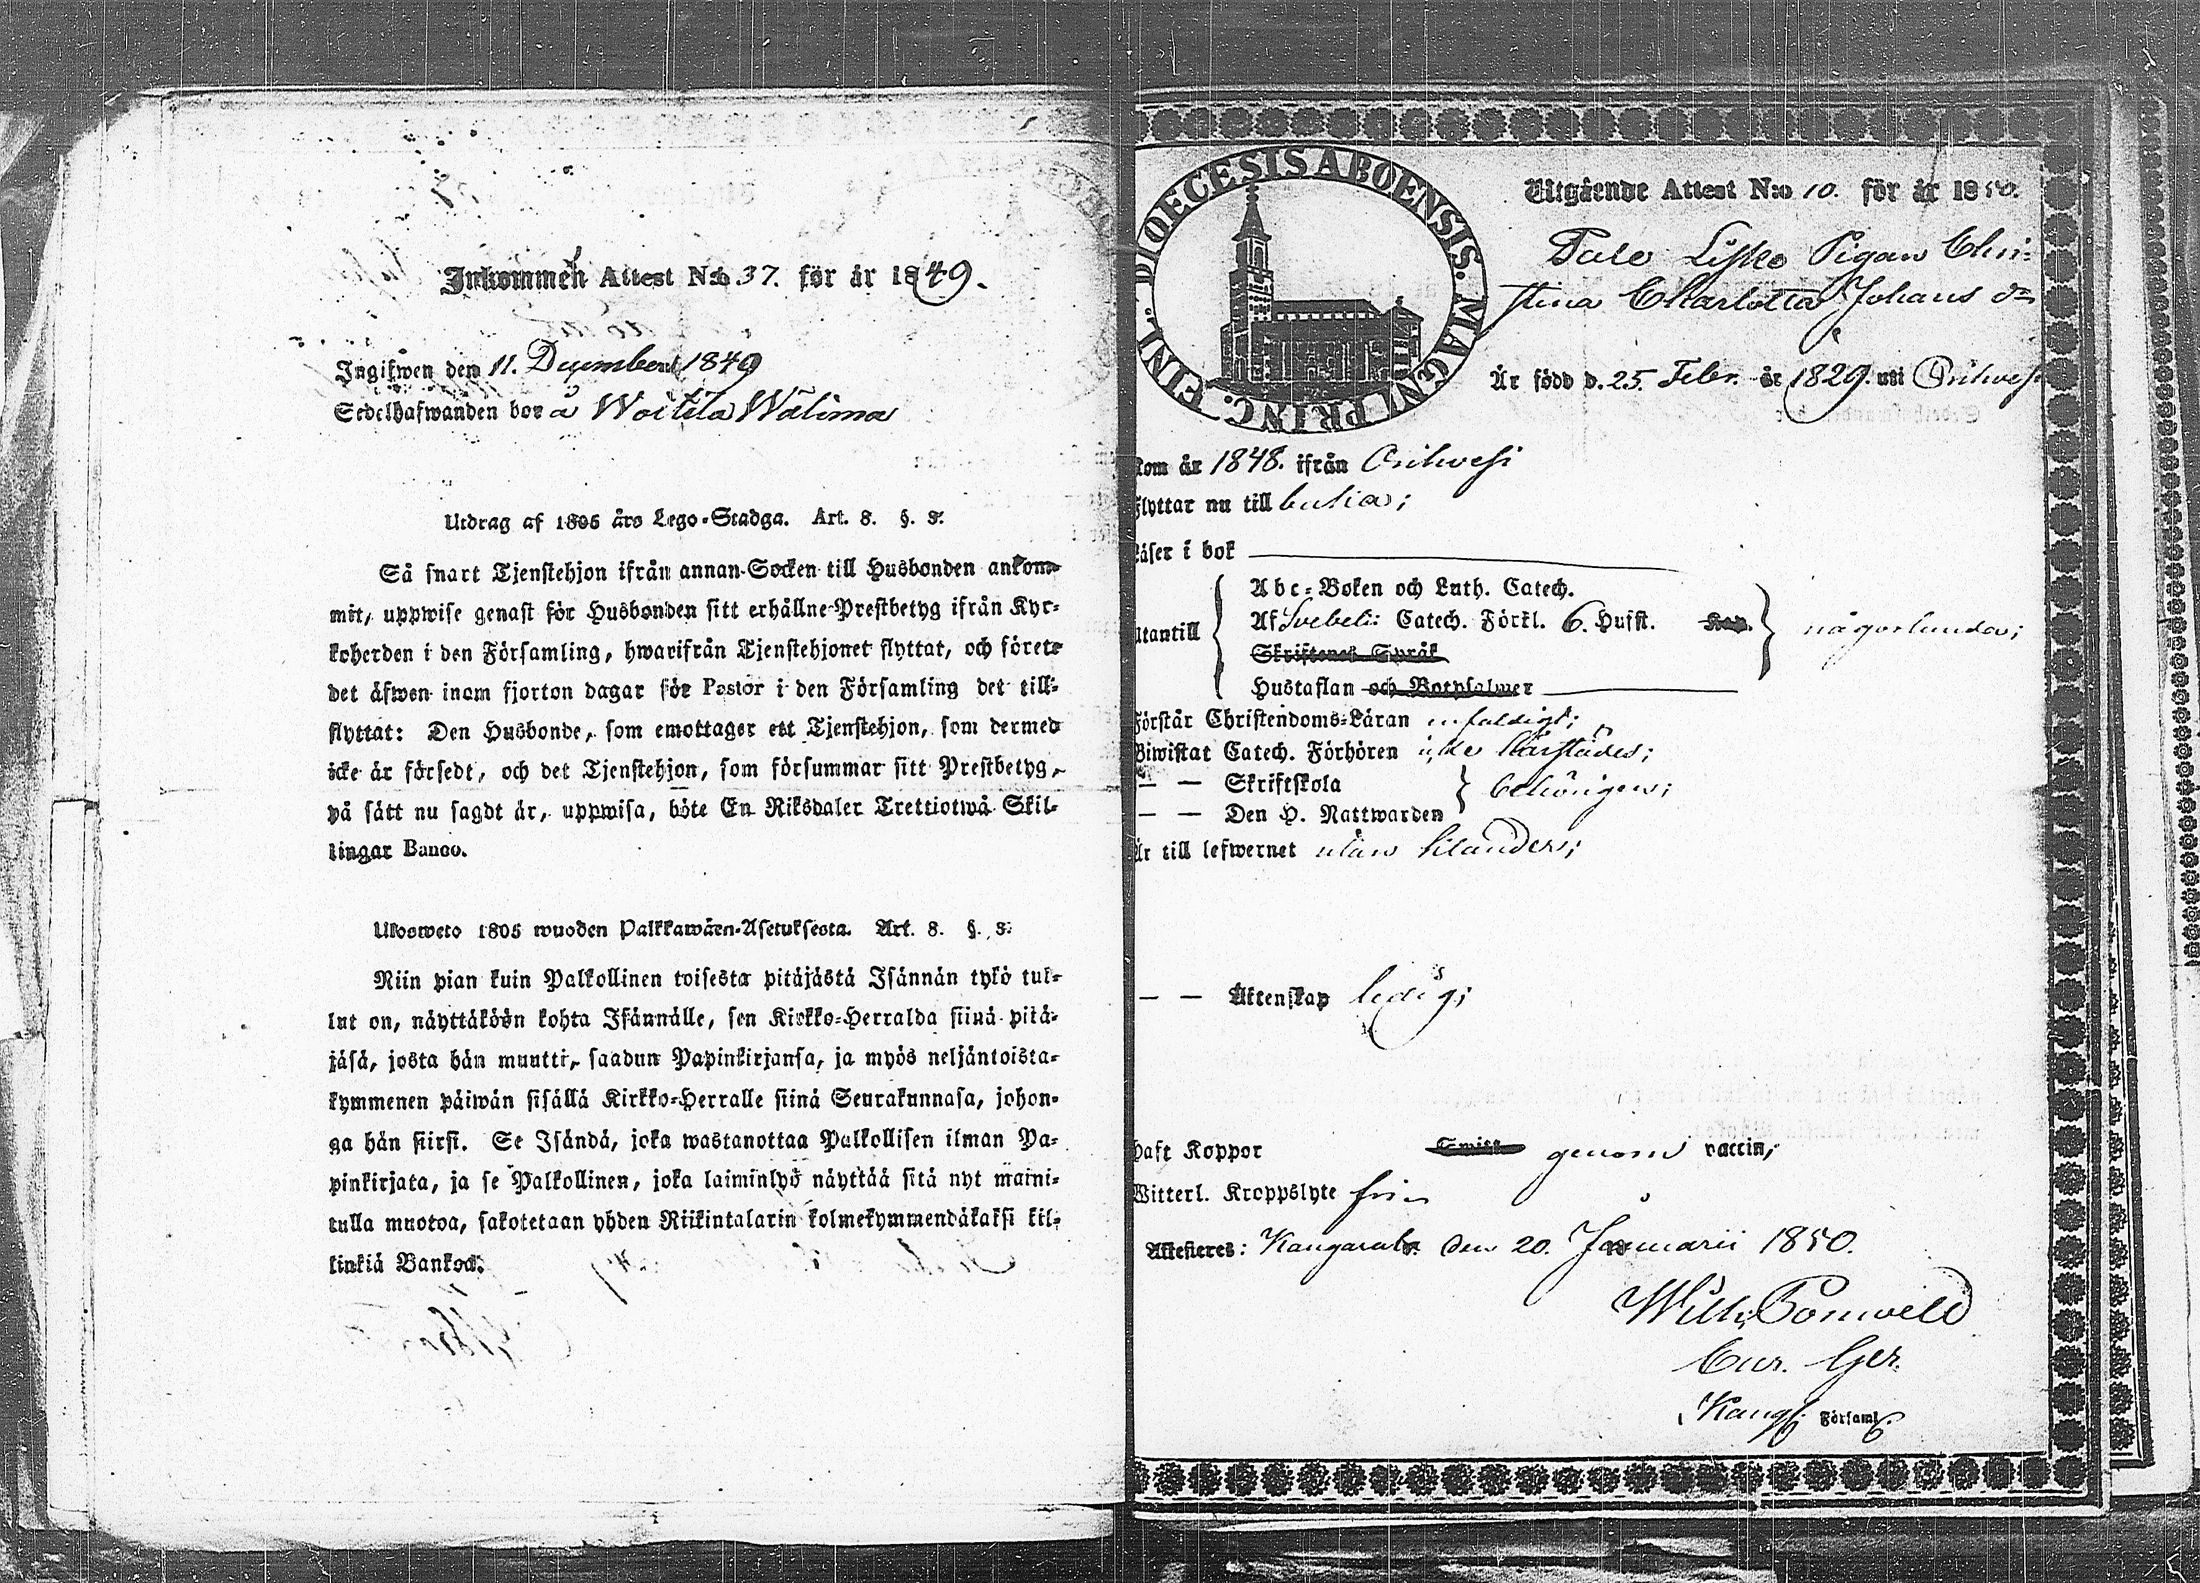 Inkommen Attest N:o 37. för år 1849.
Ingifwen den 11. December 1849
Sedelhafwanden bor å Woitila Wälimaa
Utdrag af 1805 års Lego-Stadga. Art. 8. §. 3.
Så snart Tjenstehjon ifrån annan Socken till Husbonden ankom-
mit, uppwise genast för Husbonden sitt erhållne Prestbetyg ifrån Kyr-
koherden i den Församling, hwarifrån Tjenstehjonet flyttat, och förete
det äfwen inom fjorton dagar för Pastor i den Församling det till-
flyttat: Den Husbonde, som emottager ett Tjenstehjon, som dermed
icke är försedt, och det Tjenstehjon, som försummar sitt Prestbetyg,
på sätt nu sagdt är, uppwisa, böte En Riksdaler Trettiotwå Skil-
lingar Banco.
Ulosweto 1805 wuoden Palkkawäen-Asetuksesta. Art. 8. §. 3.
Niin pian kuin Palkollinen toisesta pitäjästä Isännän tykö tul-
lut on, näyttäköön kohta Isännälle, sen Kirkko-Herralda siinä pitä-
jäsä, josta hän muutti, saadun Papinkirjansa, ja myös neljäntoista-
kymmenen päiwän sisällä Kirkko-Herralle siinä Seurakunnasa, johon-
ga hän siirsi. Se Isändä, joka wastanottaa Palkollisen ilman Pa-
pinkirjata, ja se Palkollinen, joka laiminlyö näyttää sitä nyt maini-
tulla muotoa, sakotetaan yhden Riikintalarin kolmekymmendäkaksi kil-
linkiä Bankoa.
DIOECESIS ABOENSIS. MAGNI PRINC. FINL.
Utgående Attest N:o 10. för år 1850.
Pigan Chri-
stina Charlotta Johans dr
Är född d. 25. Febr. år 1829. uti Orihvesi
kom år 1848. ifrån Orihvesi
flyttar nu till
Läser i bok
Abc-Boken och Luth. Catech.
Af Svebelii Catech. Förkl. 6. Hufst. Kap.
utantill någorlunda;
Skriftenes Språk
Hustaflan och Botpsalmer
Förstår Christendoms-Läran enfaldigt;
Biwistat Catech. Förhören icke härstädes;
— — Skriftskola
behörigen;
— — Den H. Nattwarden
Är till lefwernet utan
— — Äktenskap ledig;
Haft Koppor genom vaccin;
Witterl. Kroppslyte fri
Attesteres: Kangasala den 20. Januarii 1850.
Wilh.
Cur. Ger.
Kangs. Församl.